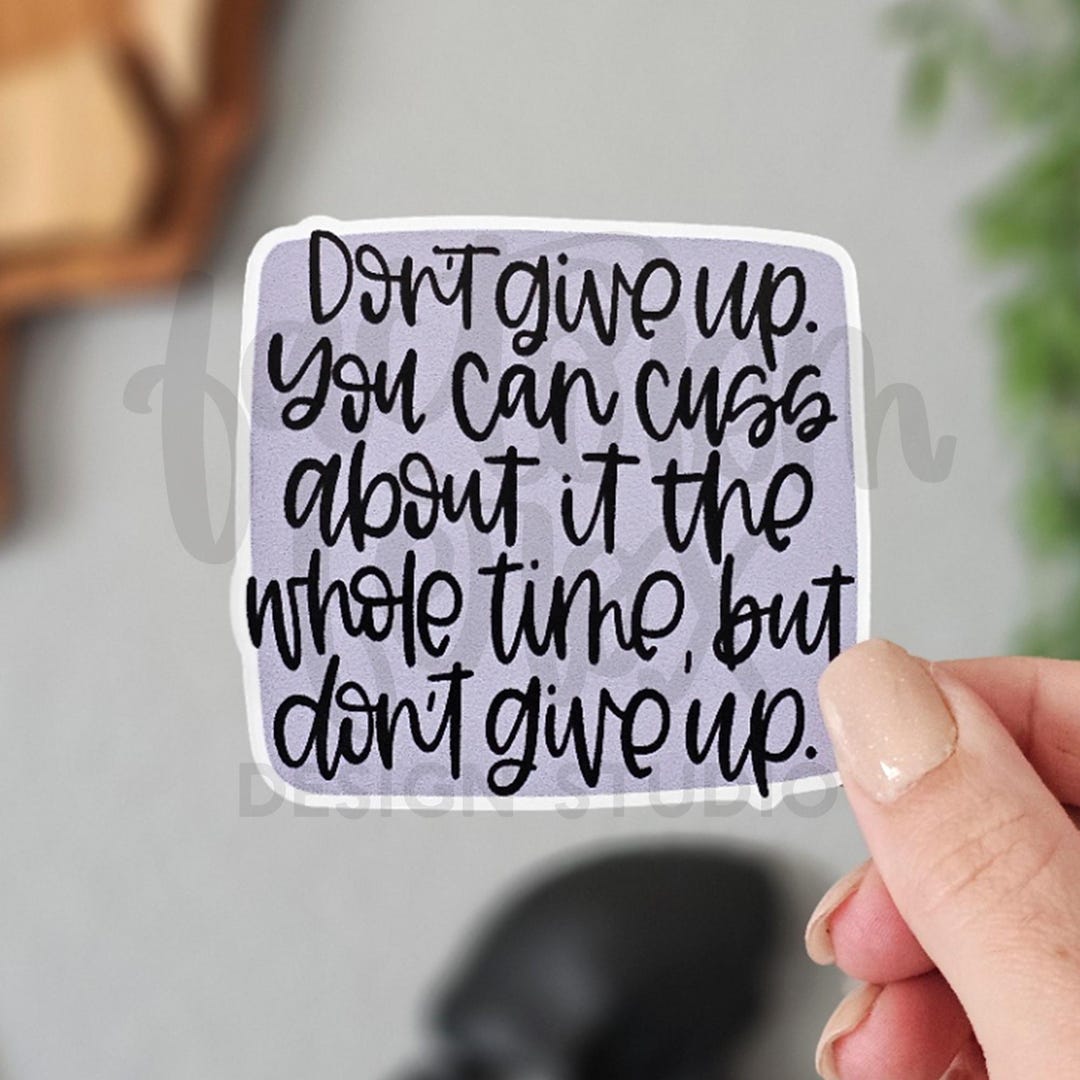 Don't give up.
You can cuss
about it the
whole time, but
don't give up.
DESIGN STUDIO